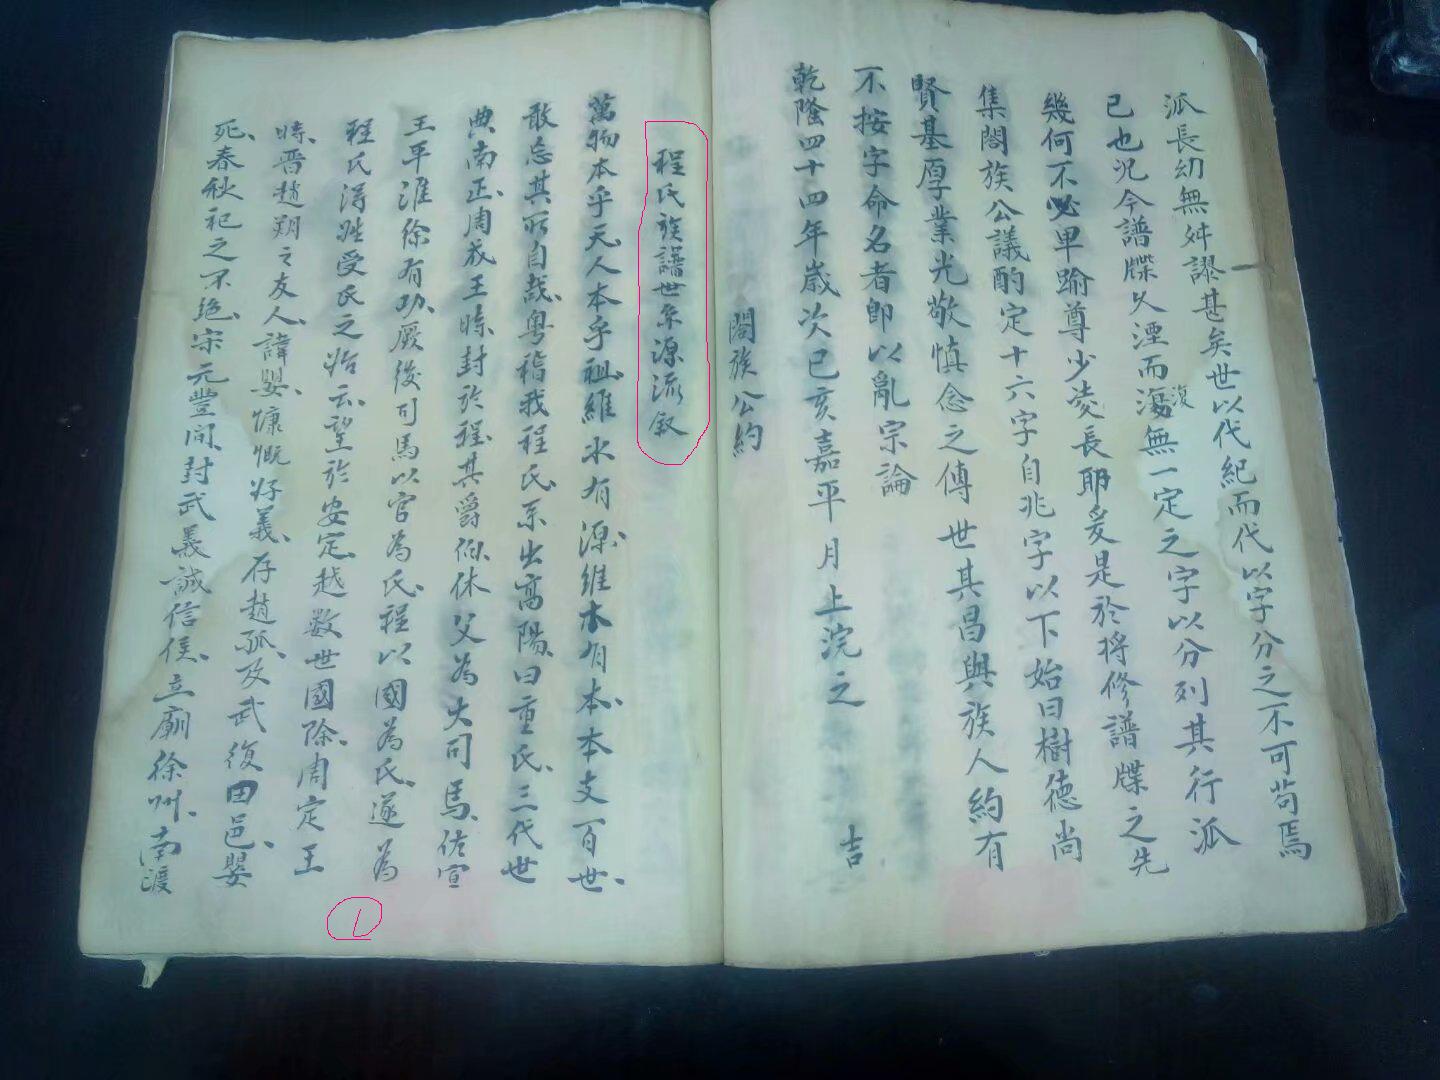 派長幼無舛謬甚矣世以代紀而代以字分之不可苟焉
已也況今譜牒久湮而蕩復無一定之字以分列其行派
幾何不必卑踰尊少凌長耶爰是於將修譜牒之先
集閤族公議酌定十六字自兆字以下始曰樹德尚
賢基厚業光敬慎念之傳世其昌與族人約有
不按字命名者即以亂宗論
乾隆四十四年歲次己亥嘉平月上浣之 吉
閤族公約
程氏族譜世系源流叙
萬物本乎天人本乎祖維水有源維木有本本支百世
敢忘其所自哉粵稽我程氏系出高陽曰重氏三代世
典南正周成王時封於程其爵伯休父為大司馬佐宣
王平淮徐有功厥後司馬以官為氏程以國為氏遂為
程氏得姓受氏之始云望於安定越數世國除周定王
時晋趙朔之友人諱嬰慷慨好義存趙孤及武復田邑嬰
死春秋祀之不絶宋元豐間封武義誠信侯立廟徐州南渡
1